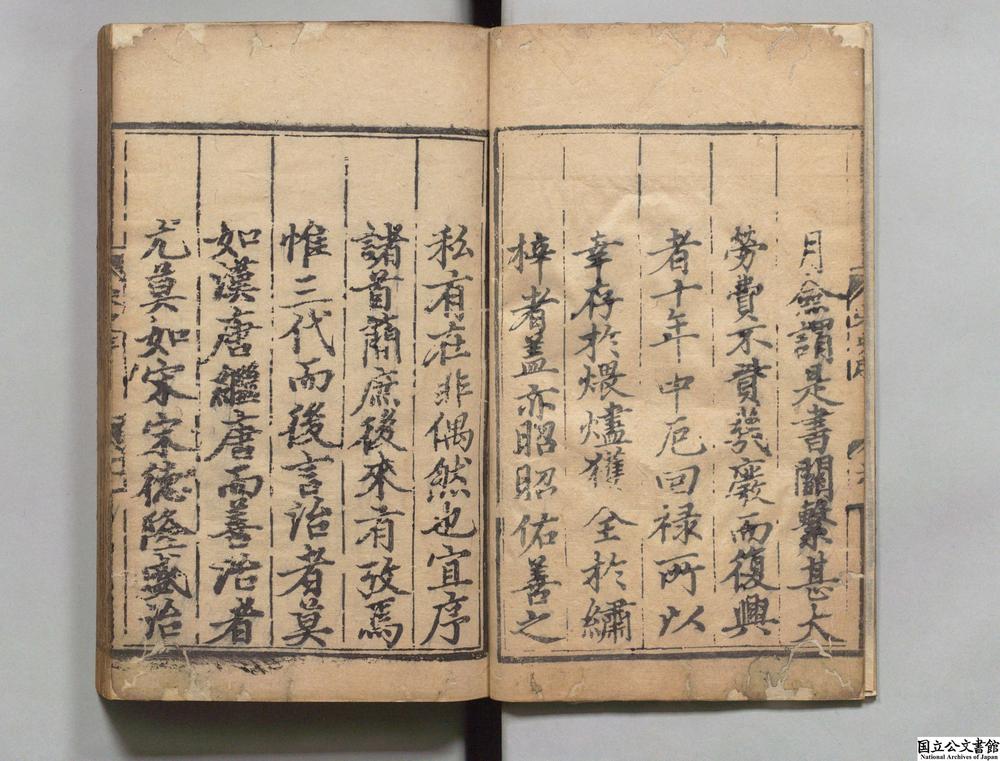 月僉謂是書關繫甚大
勞費不貲幾廢而復興
者十年中厄回祿所以
幸存於煨燼獲全於繡
梓者盖亦昭昭佑善之
私有在非偶然也宜序
諸首蕳庶後來有攷焉
惟三代而後言治者莫
如漢唐繼唐而善治者
尤莫如宋宋德隆盛治
国立公文書館
National Archives of Japan